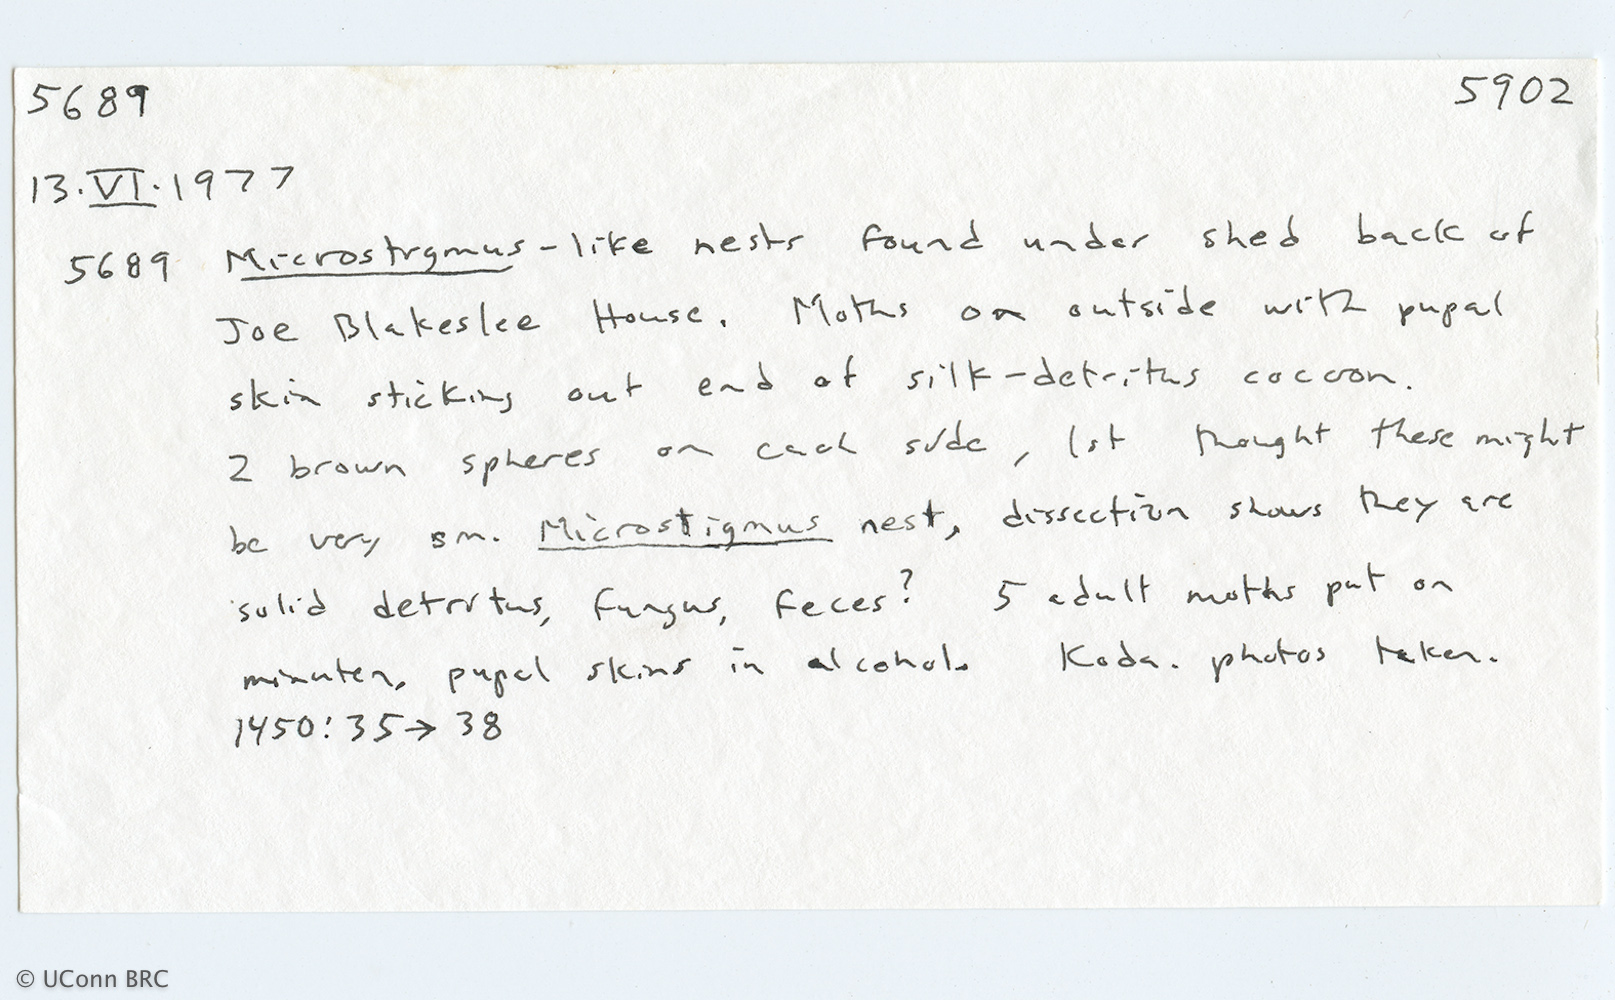 5689 5902
13.VI.1977
5689 Microstigmus-like nests found under shed back of
Joe Blakeslee House. Moths on outside with pupal
skin sticking out end of silk-detritus cocoon.
2 brown spheres on each side, 1st thought these might
be very sm. Microstigmus nest, dissection shows they are
solid detritus, fungus, feces? 5 adult moths put on
minuten, pupal skins in alcohol. Koda. photos taken.
1450:35→38
© UConn BRC